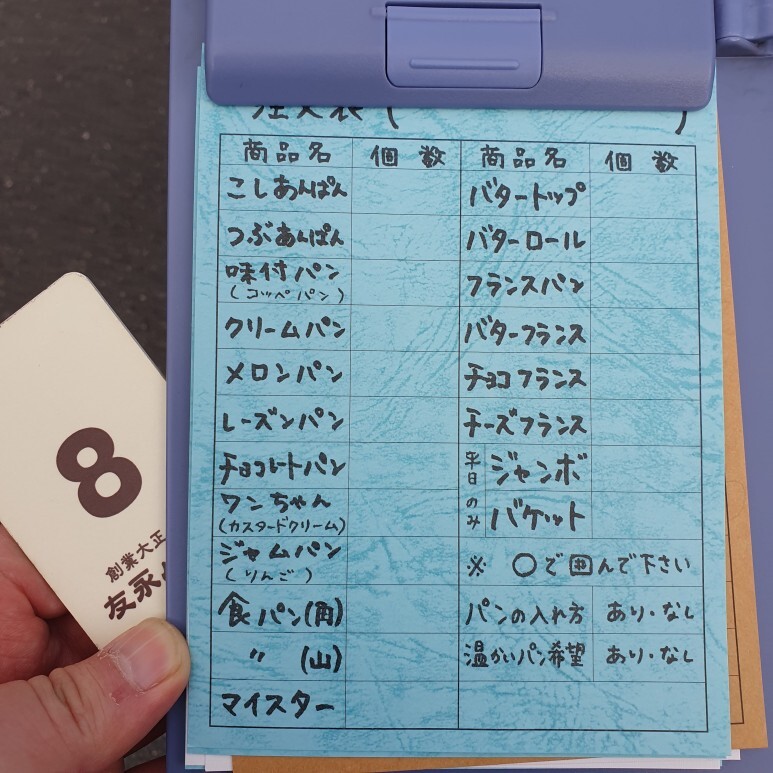 注文表(                    )
商品名 個数 商品名 個数
こしあんぱん バタートップ
つぶあんぱん バターロール
味付パン フランスパン
(コッペパン)
クリームパン バターフランス
メロンパン チョコフランス
レーズンパン チーズフランス
チョコレートパン 平日のみ ジャンボ
ワンちゃん バケット
(カスタードクリーム)
ジャムパン ※ ○で囲んで下さい
(りんご)
食パン(角) パンの入れ方 あり・なし
〃 (山) 温かいパン希望 あり・なし
マイスター
8
創業大正
友永